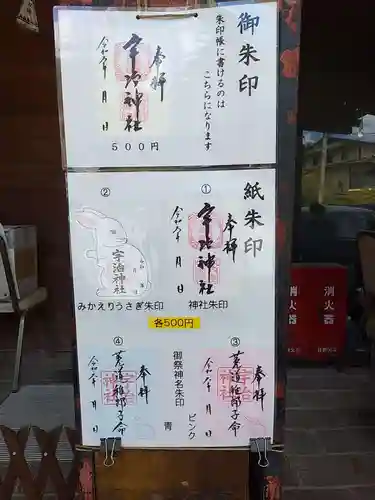 御朱印
朱印帳に書けるのは
こちらになります
奉拝
宇治神社
令和六年 月 日
５００円
紙朱印
①
奉拝
宇治神社
令和六年 月 日
神社朱印
②
宇治神社
みかえりうさぎ朱印
各500円
御祭神名朱印
ピンク
青
③
奉拝
菟道稚郎子命
令和六年 月 日
④
奉拝
菟道稚郎子命
令和六年 月 日
消火器
消火器